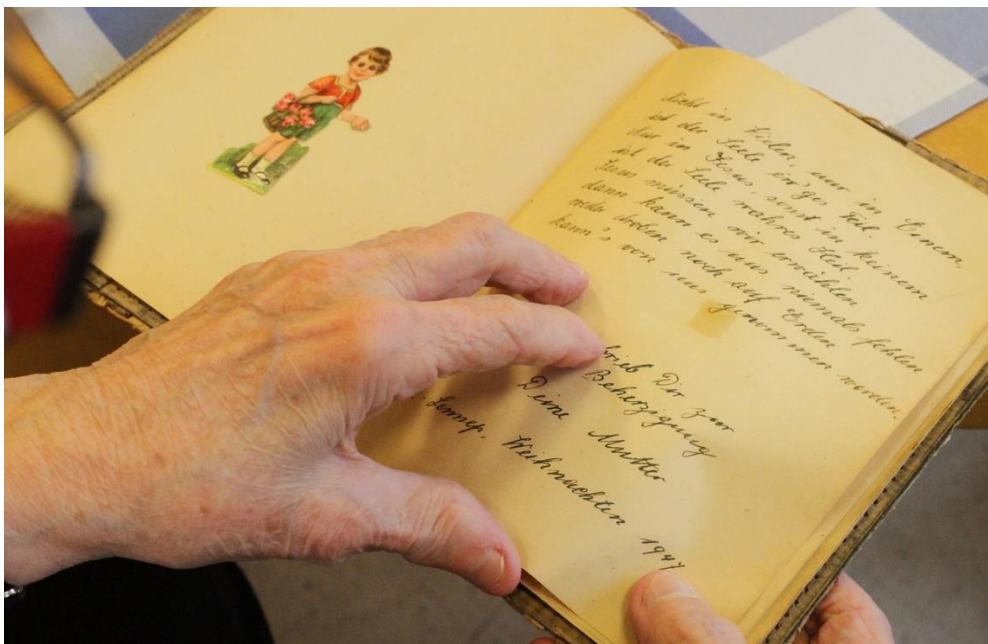 Nicht in Vielen, nur in Einem,
ist der Seele ew'ges Teil.
Nur in Jesus, sonst in keinem
ist der Seele wahres Heil.
Jesus müssen wir erwählen
dann kann es uns niemals fehlen
weder droben noch auf Erden
kann's von uns genommen werden.
Dir zum
Beherzigung
Deine Mutter
Lennep, Weihnachten 1947